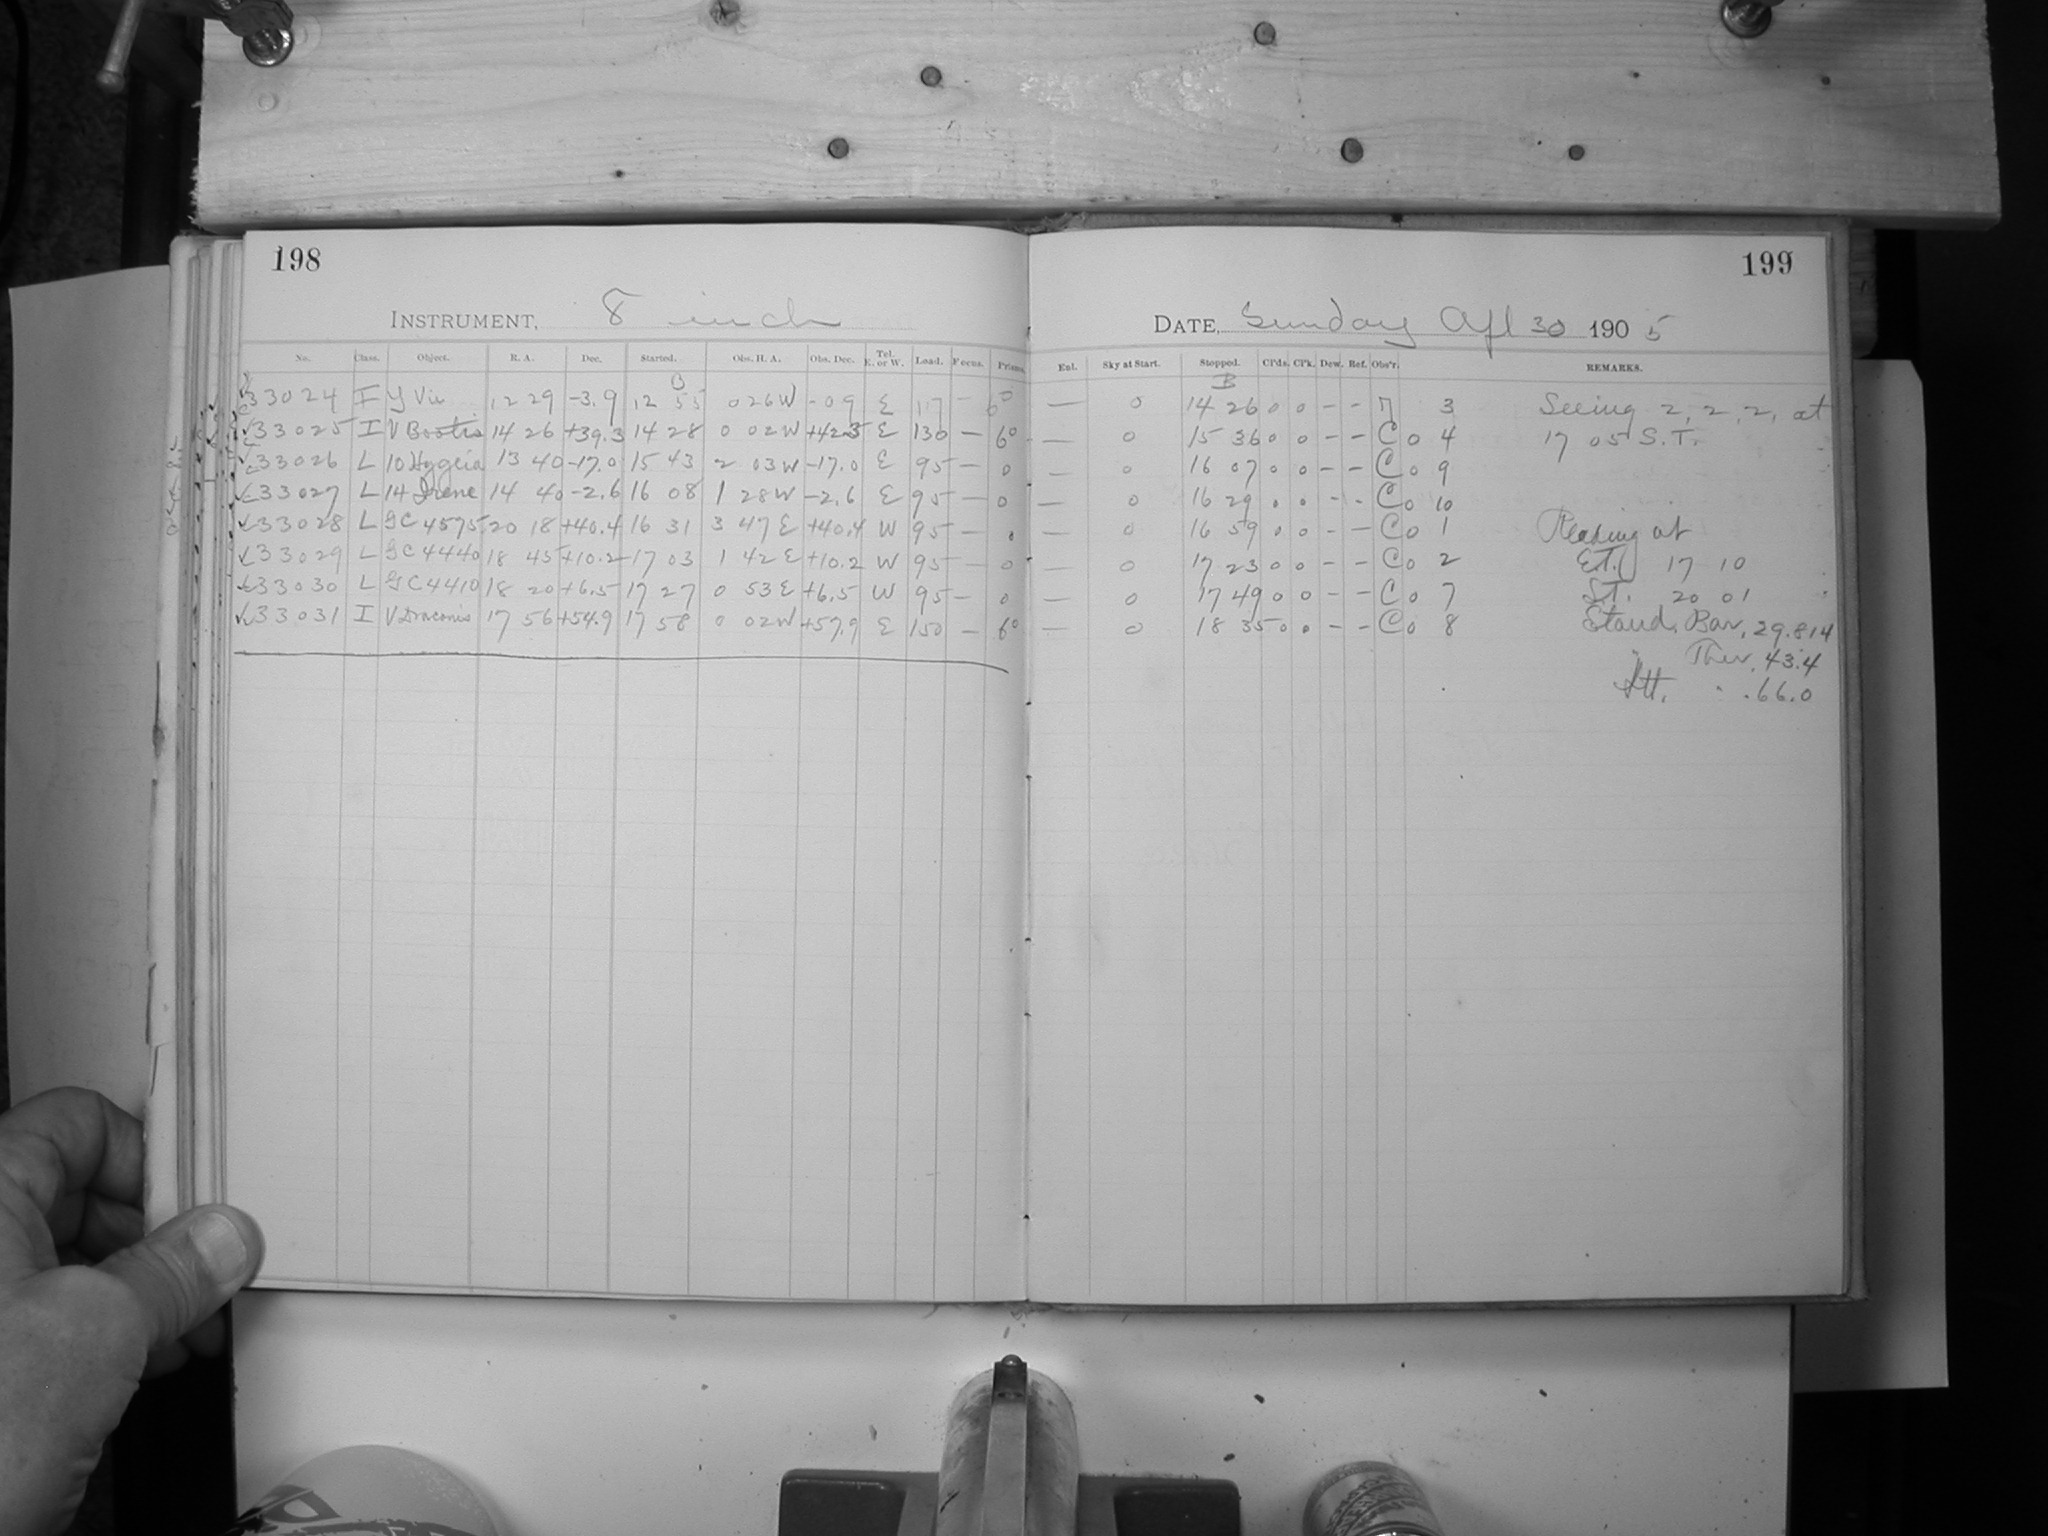 198
INSTRUMENT, 8 inch
No. Class. Object. R. A. Dec. Started. Obs. H. A. Obs. Dec. Tel. E. or W. Load. Focus. Prisms.
33024 I γ Vir 12 29 -3.9 12 55 0 26W -0.9 E 117 - 6°
33025 I V Bootis 14 26 +39.3 14 28 0 02W +42.5 E 130 - 6°
33026 L 10 Hygeia 13 40 -17.0 15 43 2 03W -17.0 E 95 - 0
33027 L 14 Irene 14 40 -2.6 16 08 1 28W -2.6 E 95 - 0
33028 L GC 4575 20 18 +40.4 16 31 3 47 E +40.4 W 95 - 0
33029 L GC 4440 18 45 +10.2 17 03 1 42 E +10.2 W 95 - 0
33030 L GC 4410 18 20 +6.5 17 27 0 53 E +6.5 W 95 - 0
33031 I V Draconis 17 56 +54.9 17 58 0 02W +57.9 E 150 - 6°
199
DATE, Sunday Apl 30 1905
Ent. Sky at Start. Stopped. Cl'ds. Cl'k. Dew. Ref. Obs'r. REMARKS.
B
— 0 14 26 0 0 - - 3 Seeing 2, 2, 2, at
— 0 15 36 0 0 - - Co 4 17 05 S.T.
— 0 16 07 0 0 - - Co 9
— 0 16 29 0 0 - - Co 10
— 0 16 59 0 0 - - Co 1 Reading at
— 0 17 23 0 0 - - Co 2 E.T. 17 10
— 0 17 49 0 0 - - Co 7 S.T. 20 01
— 0 18 35 0 0 - - Co 8 Stand. Bar. 29.814
Ther. 43.4
Att. " 66.0